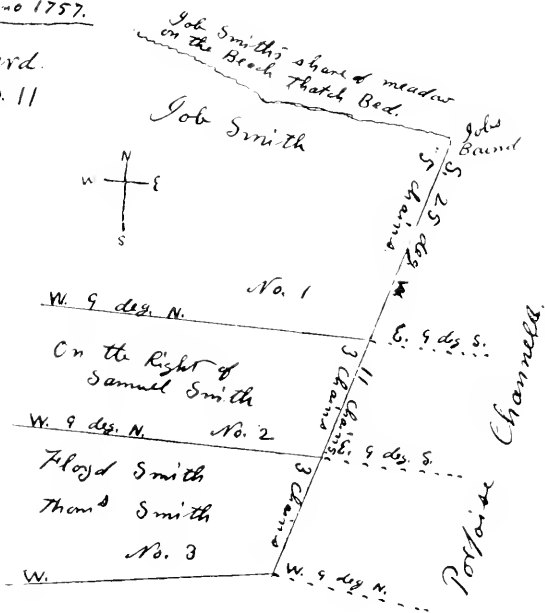 no 1757.
rd.
. 11
Job Smith's share of meadow
on the Beach Thatch Bed.
Job Smith
Jobs
Bound
N
W E
S
S. 25 deg W
5 chains
No. 1
W. 9 deg. N.
E. 9 deg S.
On the Right of
Samuel Smith
11 chains
3 chains
W. 9 deg. N.
No. 2
E. 9 deg. S.
Floyd Smith
Thoms Smith
3 chains
No. 3
W.
W. 9 deg N.
Porpoise Channell